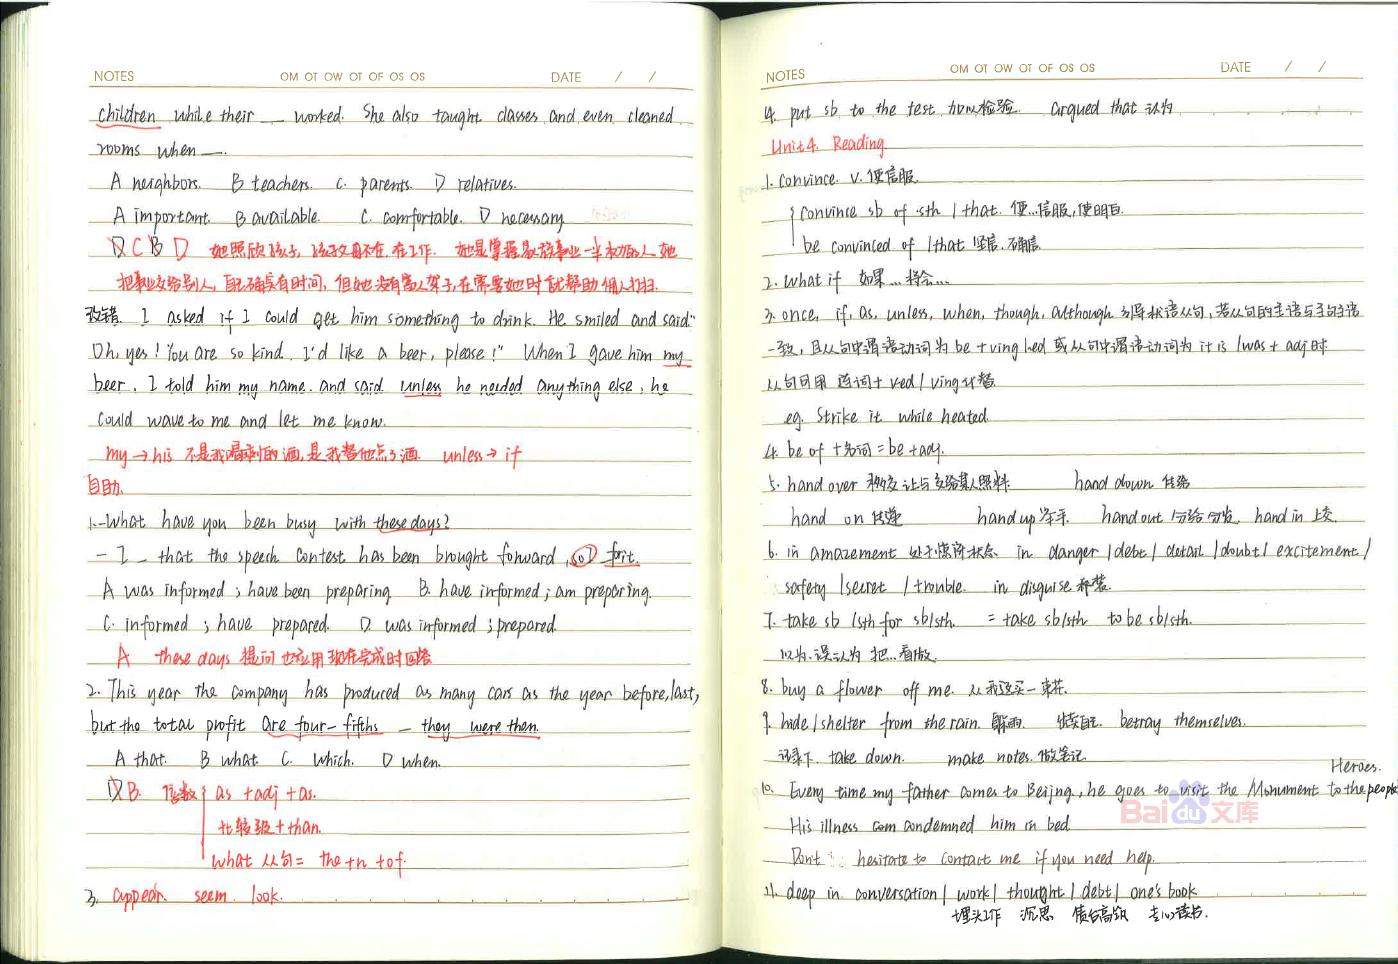 NOTES OM OT OW OT OF OS OS DATE / /
children while their __ worked. She also taught classes and even cleaned
rooms when __.
A neighbors. B teachers. C. parents. D relatives.
A important. B available. C. comfortable. D necessary
D C B D 她照顾孩子, 孩子父母不在, 在工作. 她是掌握家族事业一半权力的人, 她
把事业交给别人, 自己确实有时间, 但她没有富人架子, 在需要她时就帮助佣人打扫.
改错. I asked if I could get him something to drink. He smiled and said."
Oh, yes! You are so kind. I'd like a beer, please!" When I gave him my
beer. I told him my name. and said unless he needed anything else, he
could wave to me and let me know.
my → his 不是我喝剩的酒, 是我替他点了酒. unless → if
自助.
1. -What have you been busy with these days?
- I _ that the speech contest has been brought forward, so I _ for it.
A was informed ; have been preparing B. have informed ; am preparing.
C. informed ; have prepared. D. was informed ; prepared.
A these days 提问也应用现在完成时回答
2. This year the company has produced as many cars as the year before, last,
but the total profit are four-fifths _ they were then.
A that. B what C. which. D when.
D B. 倍数 as + adj + as.
比较级 + than.
what 从句 = the + n + of.
3. appear. seem. look.
NOTES OM OT OW OT OF OS OS DATE / /
4. put sb to the test 加以检验. argued that 认为
Unit4. Reading
1. convince. v. 使信服.
convince sb of sth / that. 使...信服, 使明白.
be convinced of / that 坚信. 确信
2. what if 如果...将会...
3. once, if, as, unless, when, though, although 引导状语从句, 若从句的主语与主句主语
一致, 且从句中谓语动词为 be + ving / ved 或从句中谓语动词为 it is / was + adj 时
从句可用 连词 + ved / ving 代替.
eg. Strike it while heated.
4. be of + 名词 = be + adj.
5. hand over 移交 让与 交给某人照料. hand down 传给
hand on 传递 hand up 举手. hand out 分给 分发. hand in 上交.
6. in amazement 处于惊讶状态 in danger / debt / detail / doubt / excitement /
safety / secret / trouble. in disguise 乔装.
7. take sb / sth for sb/sth. = take sb/sth to be sb/sth.
以为. 误认为 把...看做.
8. buy a flower off me. 从我这买一束花.
9. hide / shelter from the rain. 躲雨. betray themselves.
记录下. take down. make notes. 做笔记
Heroes.
10. Every time my father comes to Beijing, he goes to visit the Monument to the people
His illness condemned him in bed
Don't hesitate to contact me if you need help.
11. deep in conversation / work / thought / debt / one's book
埋头工作 沉思 债台高筑 专心读书.
Baidu文库